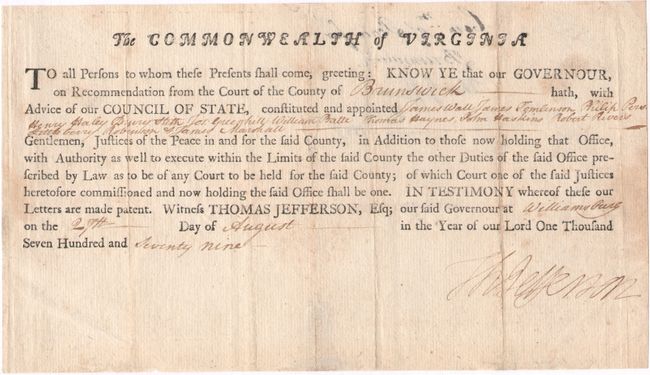 The COMMONWEALTH of VIRGINIA
TO all Persons to whom these Presents shall come, greeting: KNOW YE that our GOVERNOUR,
on Recommendation from the Court of the County of Brunswick hath, with
Advice of our COUNCIL OF STATE, constituted and appointed James Wall James Tomlinson Philip
Henry William Thomas Haynes John Haskins Robert Rivers
Robinson & James Marshall
Gentlemen, Justices of the Peace in and for the said County, in Addition to those now holding that Office,
with Authority as well to execute within the Limits of the said County the other Duties of the said Office pre-
scribed by Law as to be of any Court to be held for the said County; of which Court one of the said Justices
heretofore commissioned and now holding the said Office shall be one. IN TESTIMONY whereof these our
Letters are made patent. Witness THOMAS JEFFERSON, Esq; our said Governour at Williamsburg
on the 27th Day of August in the Year of our Lord One Thousand
Seven Hundred and Seventy nine
Th Jefferson